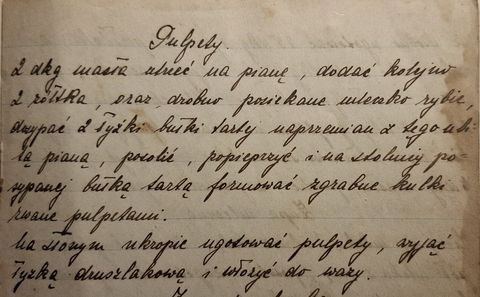 Pulpety.
2 dkg masła utrzeć na pianę, dodać kolejno
2 żółtka, oraz drobno posiekane mleczko rybie,
dosypać 2 łyżki bułki tartej naprzemian z tęgo ubi-
tą pianą, posolić, popieprzyć i na stolnicy po-
sypanej bułką tartą formować zgrabne kulki
zwane pulpetami.
Na słonym ukropie ugotować pulpety, wyjąć
łyżką druszlakową i włożyć do wazy.